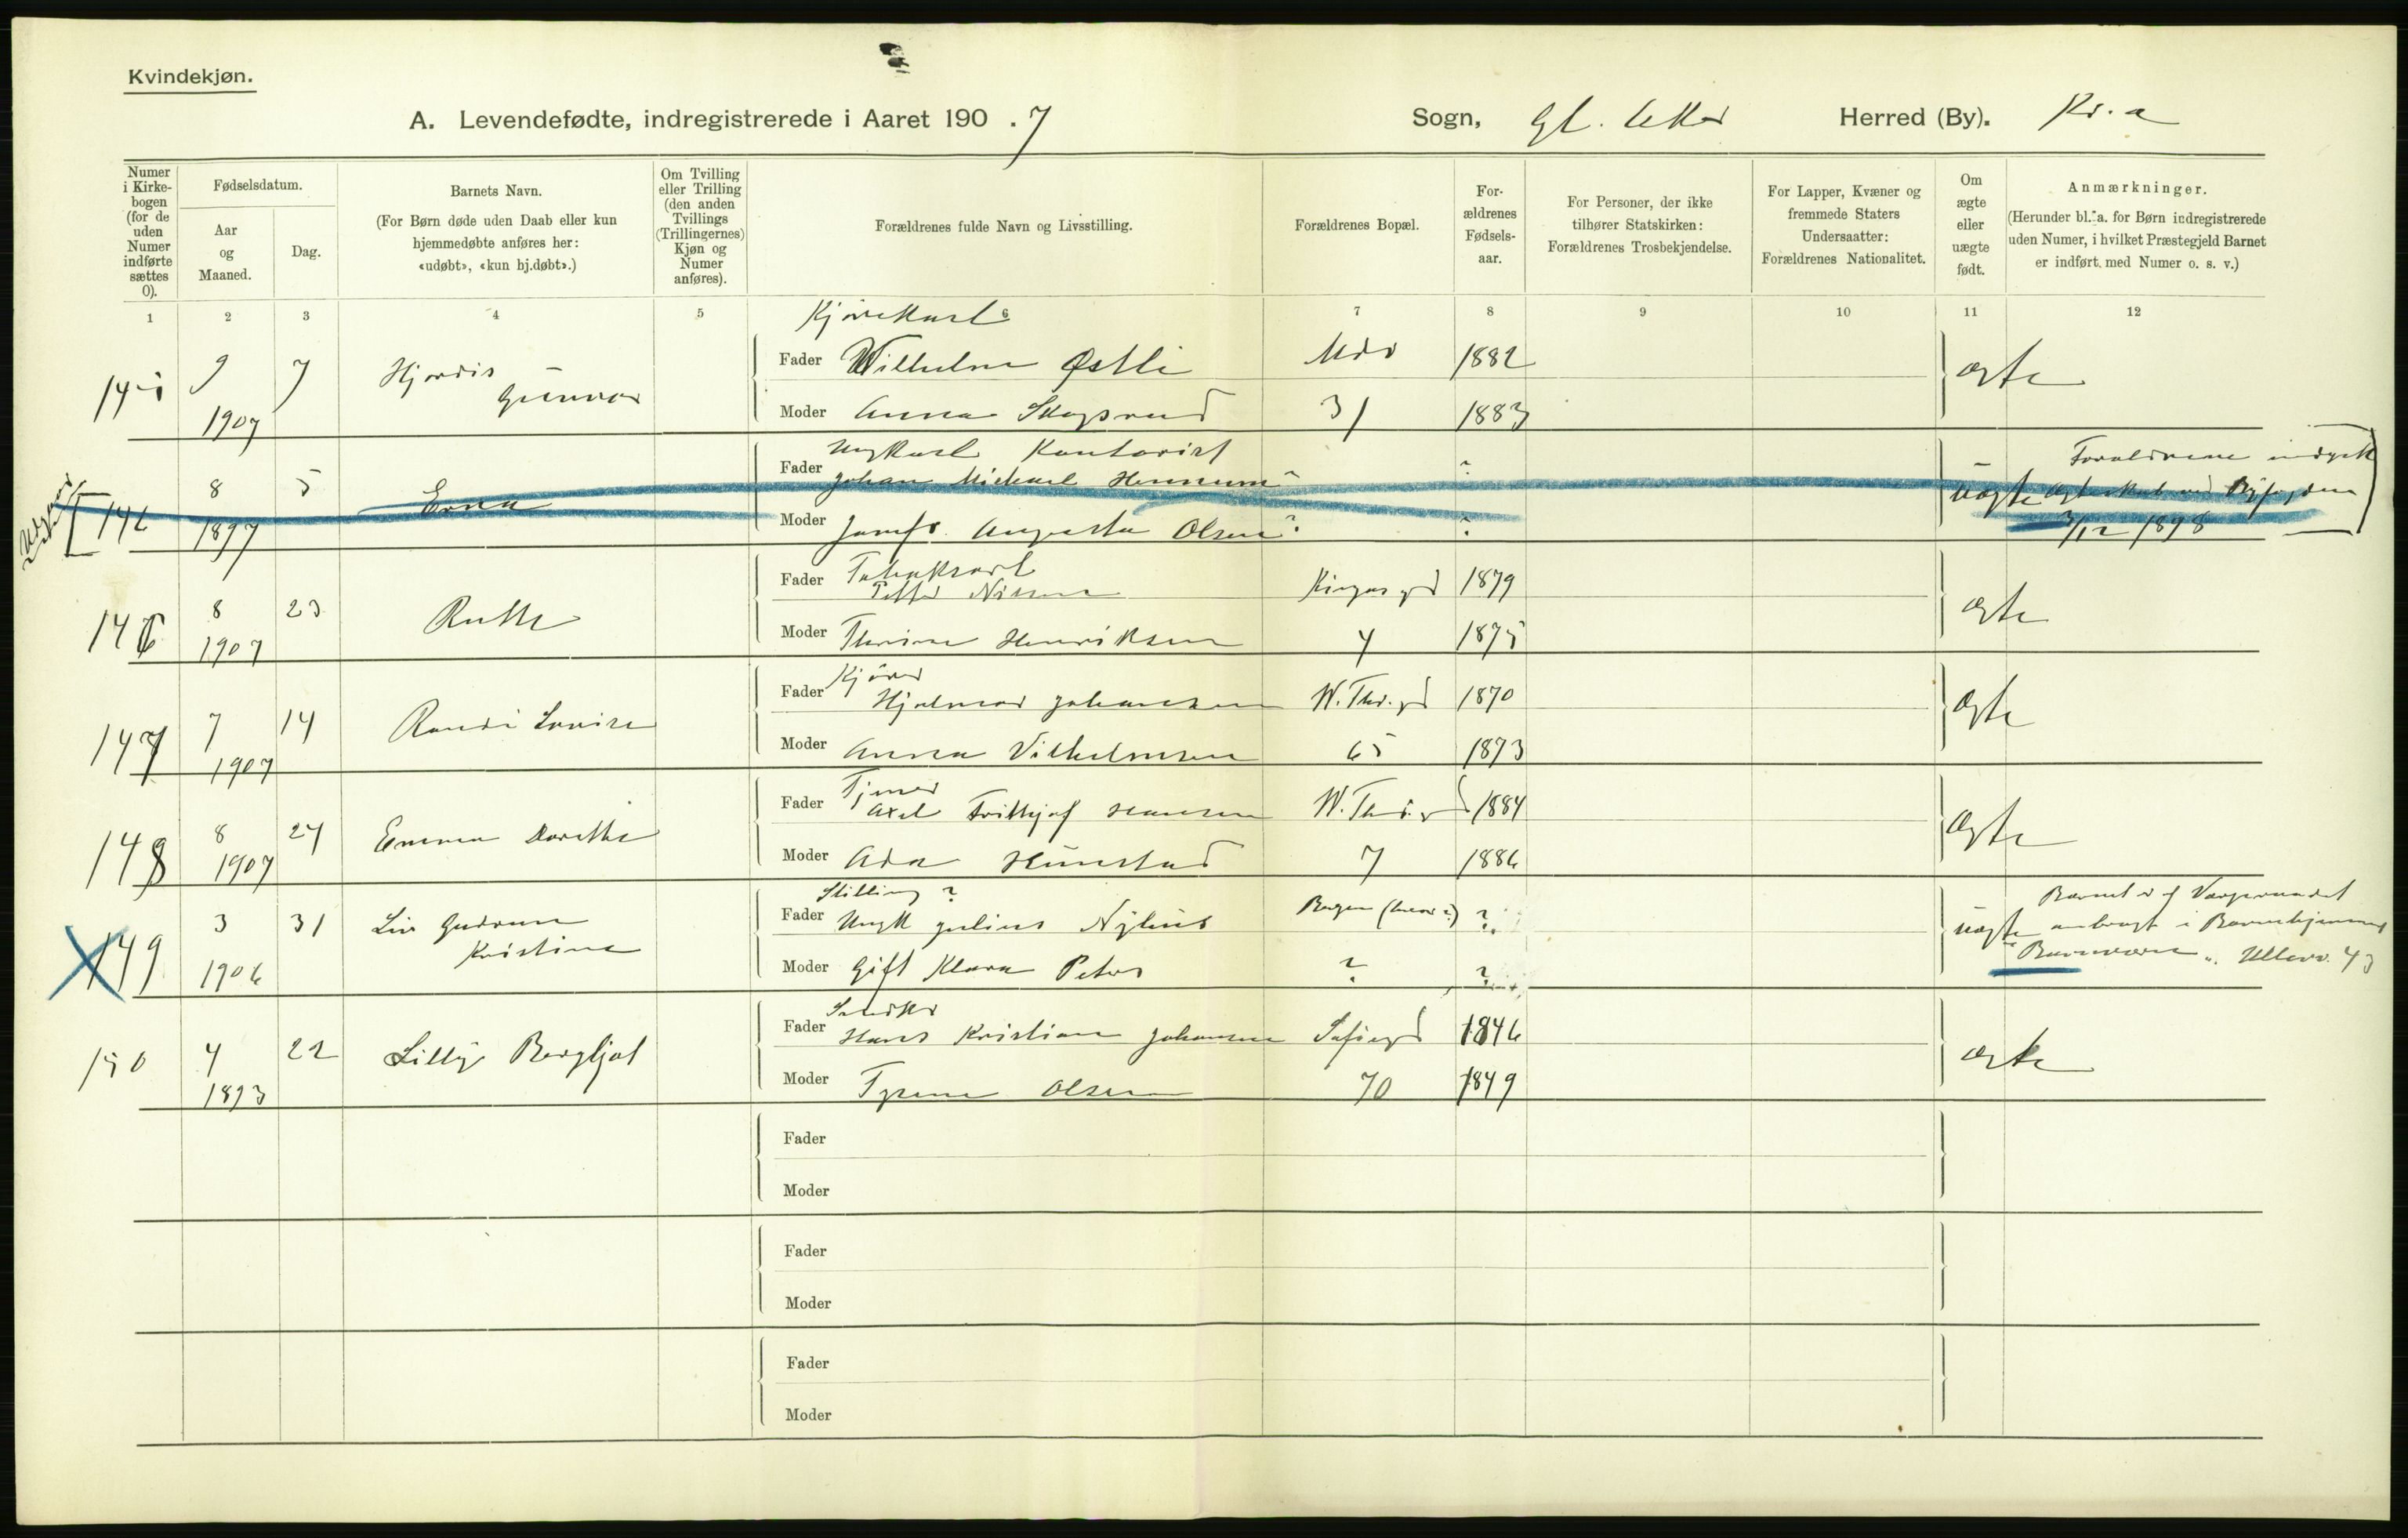 Kvindekjøn.
A. Levendefødte, indregistrerede i Aaret 190 . 7
Sogn, Gl. Aker Herred (By). Kr.a
Numer i Kirke-bogen (for de uden Numer indførte sættes 0).
Fødselsdatum.
Aar og Maaned.
Dag.
Barnets Navn.
(For Børn døde uden Daab eller kun hjemmedøbte anføres her: «udøbt», «kun hj.døbt».)
Om Tvilling eller Trilling (den anden Tvillings (Trillingernes) Kjøn og Numer anføres).
Forældrenes fulde Navn og Livsstilling.
Forældrenes Bopæl.
For-ældrenes Fødsels-aar.
For Personer, der ikke tilhører Statskirken: Forældrenes Trosbekjendelse.
For Lapper, Kvæner og fremmede Staters Undersaatter: Forældrenes Nationalitet.
Om ægte eller uægte født.
Anmærkninger.
(Herunder bl. a. for Børn indregistrerede uden Numer, i hvilket Præstegjeld Barnet er indført med Numer o. s. v.)
1 2 3 4 5 6 7 8 9 10 11 12
Kjørekarl
145 9 7 Hjördis Fader Wilhelm Østli 1882 ægte
1907 Gunvor Moder Anna 31 1883
Ungkarl Kontorist Forældrene
146 8 5 Erna Fader Johan Michael Hennum ? uægte Ægteskab ved Byfogden
1897 Moder Jomfr. Augusta Olsen ? ? 3/12 1898
146 8 23 Ruth Fader 1879 ægte
1907 Petter Nilsen
Moder Henriksen 4 1875
Kjører
147 7 14 Randi Lovise Fader Hjalmar Johansen W. Thr. gd 1870 ægte
1907 Moder Anna Vilhelmsen 65 1873
Tjener
148 8 24 Emma Dorethe Fader Axel Frithjof Hansen 1884 ægte
1907 Moder Ada 7 1886
Stilling ? Barnet er af Vergeraadet
149 3 31 Liv Gudrun Fader Ungk Julius Bergen ? uægte anbragt i Barnehjemmet
1906 Kristine Moder Gift Klara Peters ? ? Ullevv. 43
150 4 22 Lilly Bergljot Fader Hans Kristian Johansen Sofiegd 1846 ægte
1893 Moder Olsen 70 1849
Fader
Moder
Fader
Moder
Fader
Moder